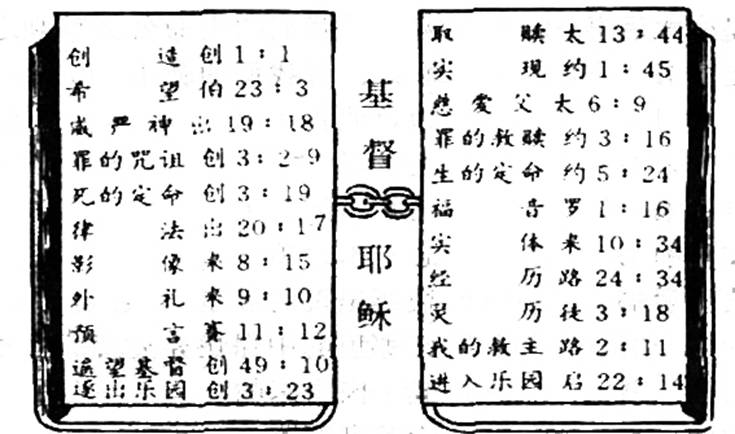 创造 创1:1
希望 伯23:3
威严神 出19:18
罪的咒诅 创3:2-9
死的定命 创3:19
律法 出20:17
影像 来8:15
外礼 来9:10
预言 赛11:12
遥望基督 创49:10
逐出乐园 创3:23
基督
耶稣
取赎 太13:44
实现 约1:45
慈爱父 太6:9
罪的救赎 约3:16
生的定命 约5:24
福音 罗1:16
实体 来10:34
经历 路24:34
灵历 徒3:18
我的救主 路2:11
进入乐园 启22:14